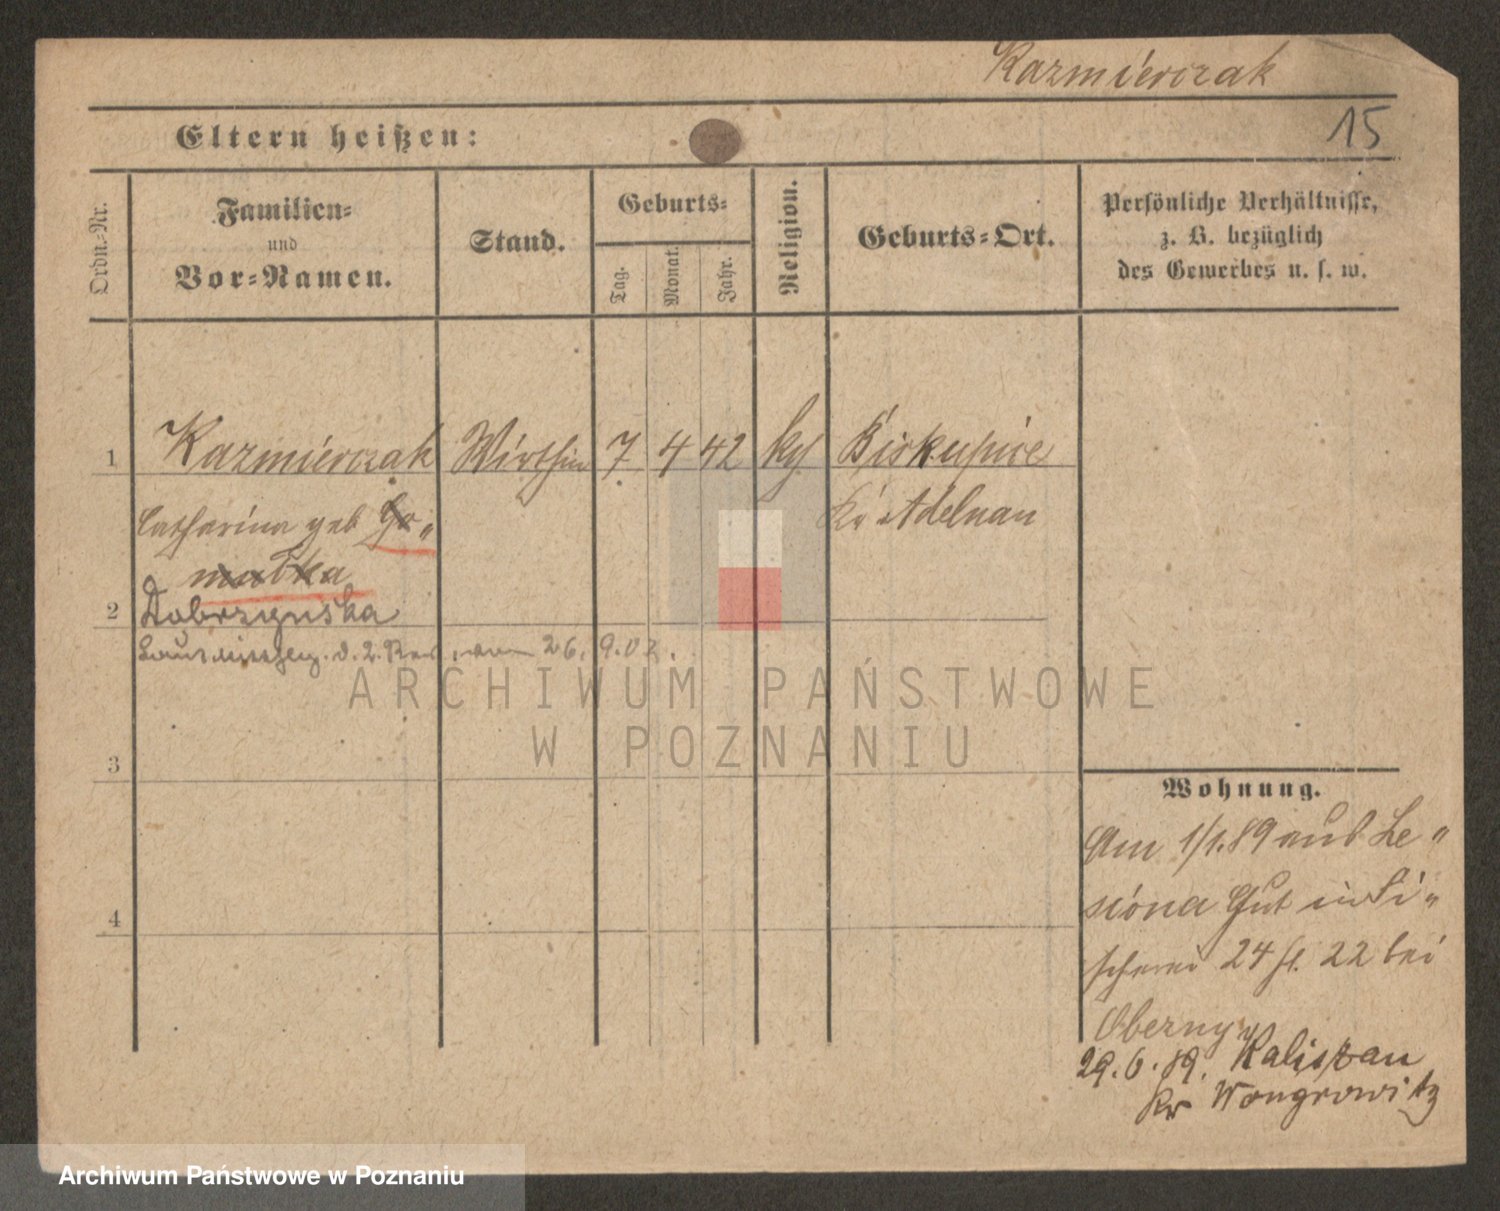 Kazmierczak
15
Eltern heißen:
Ordn.-Nr.
Familien-
und
Vor-Namen.
Stand.
Geburts-
Tag.
Monat.
Jahr.
Religion.
Geburts-Ort.
Persönliche Verhältnisse,
z. B. bezüglich
des Gewerbes u. s. w.
1 Kazmierczak Wirthin 7 4 42 kth Biskupice
Catharina geb Go-
Kr Adelnau
mulka
2 Dobrzynska
Laut d. 2. Rev. vom 26. 9. 02.
ARCHIWUM PAŃSTWOWE
W POZNANIU
3
Wohnung.
Am 1/1.89 aus Le-
siona Gut in Fi-
scherei 24 fl. 22 bei
4
Oberny
29.6.89. Kaliszan
Kr Wongrowitz
Archiwum Państwowe w Poznaniu